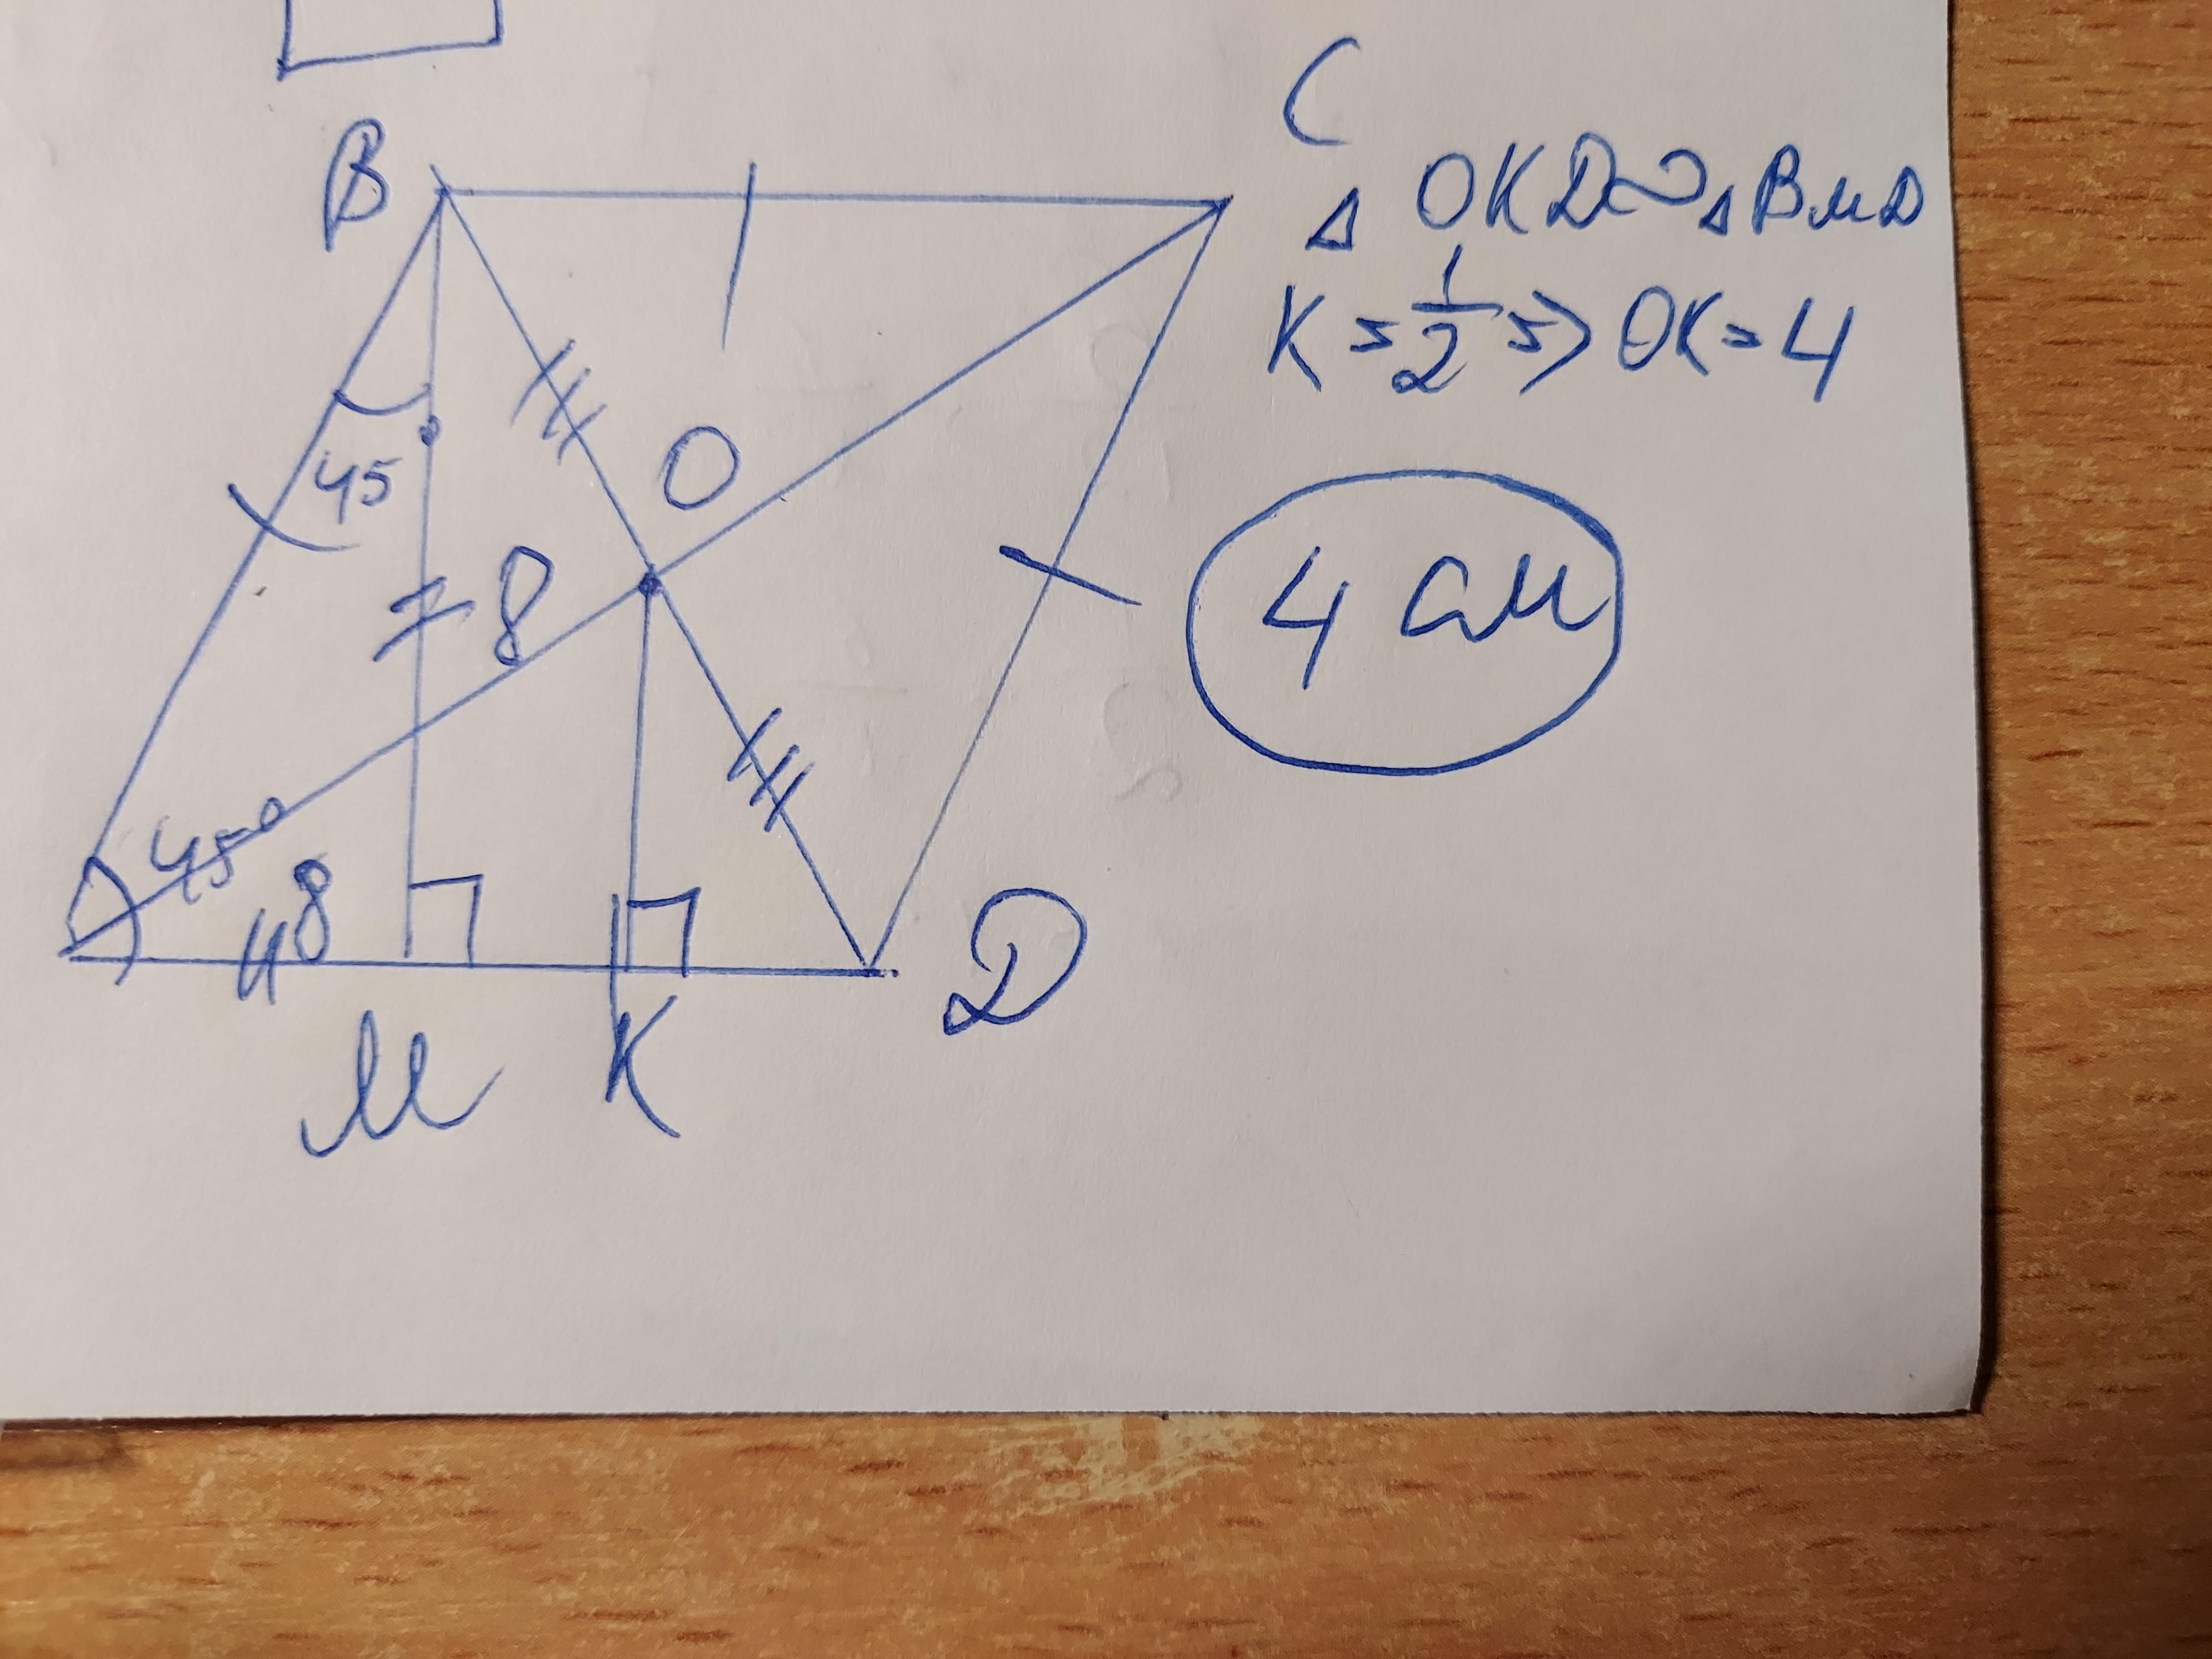 B
C
△ OKD ∾ △ BMD
K = 1/2 => OK = 4
45
O
8
4 см
45°
8
D
M
K